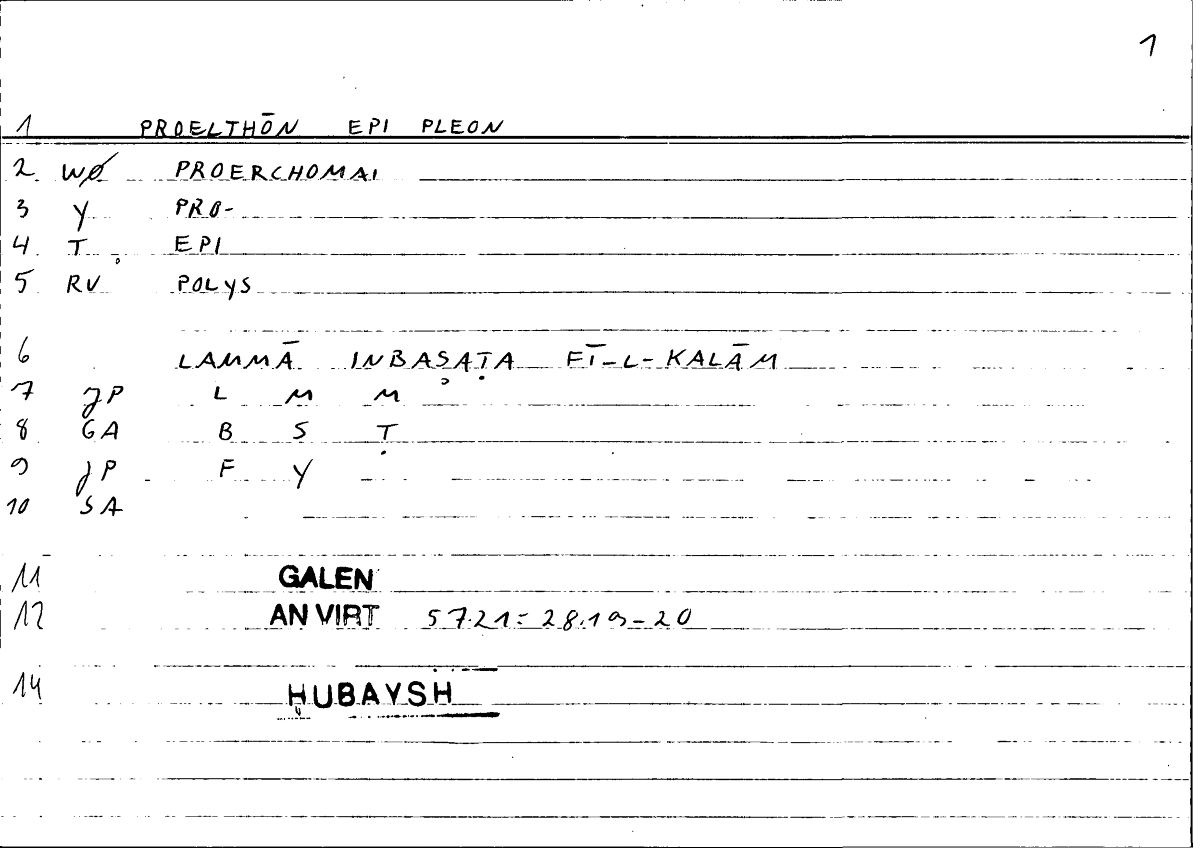 1
1 PROELTHŌN EPI PLEON
2 WØ PROERCHOMAI
3 Y PRO-
4 T EPI
5 RV POLYS
6 LAMMĀ INBASAṬA FĪ-L-KALĀM
7 JP L M M
8 GA B S Ṭ
9 JP F Y
10 SA
11 GALEN
12 AN VIRT 57.21 = 28.19-20
14 HUBAYSH